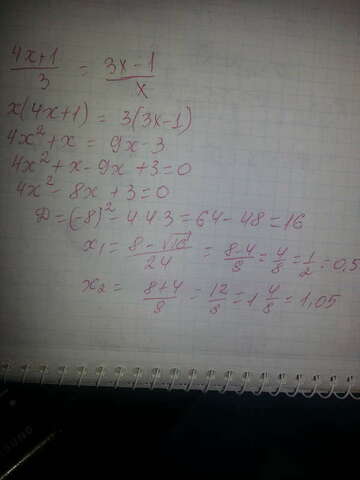 (4x+1)/3 = (3x-1)/x
x(4x+1) = 3(3x-1)
4x² + x = 9x - 3
4x² + x - 9x + 3 = 0
4x² - 8x + 3 = 0
D = (-8)² - 4·4·3 = 64 - 48 = 16
x₁ = (8 - √16)/(2·4) = (8-4)/8 = 4/8 = 1/2 = 0,5
x₂ = (8+4)/8 = 12/8 = 1 4/8 = 1,05